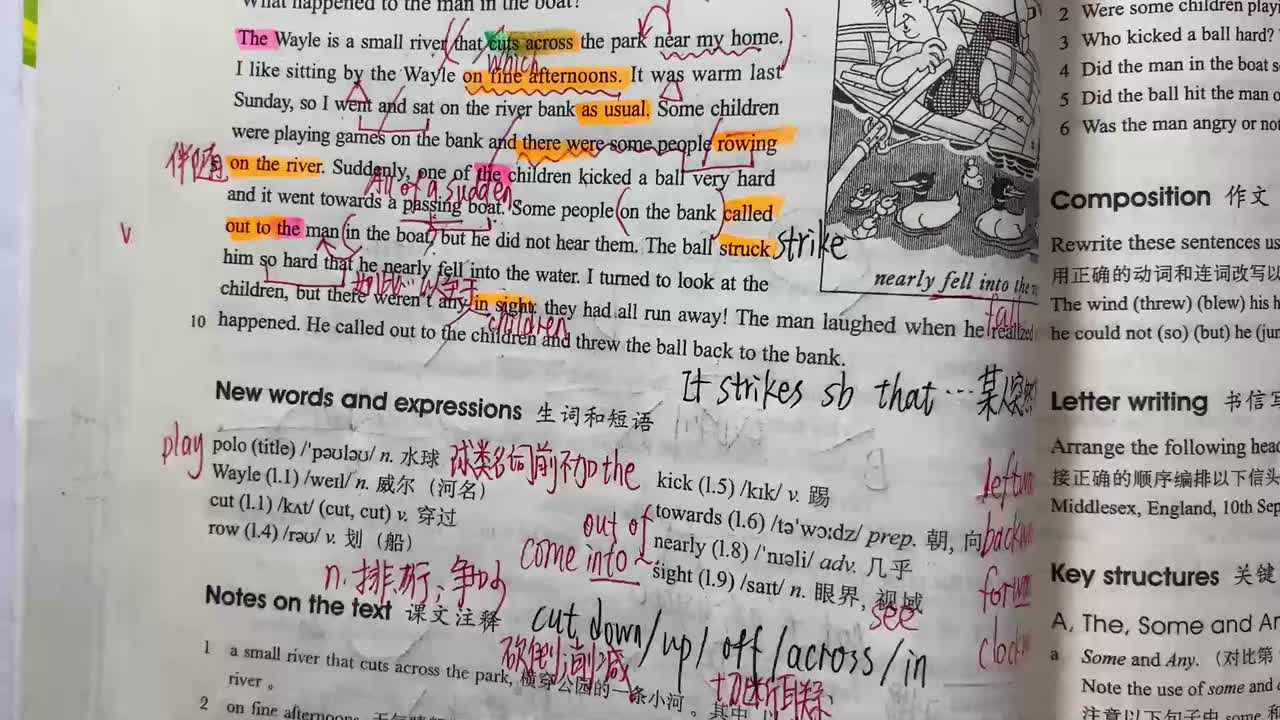 What happened to the man in the boat?
The Wayle is a small river that cuts across the park near my home.
which
I like sitting by the Wayle on fine afternoons. It was warm last
Sunday, so I went and sat on the river bank as usual. Some children
were playing games on the bank and there were some people rowing
伴随
on the river. Suddenly, one of the children kicked a ball very hard
All of a sudden
and it went towards a passing boat. Some people on the bank called
v
out to the man in the boat, but he did not hear them. The ball struck
strike
him so hard that he nearly fell into the water. I turned to look at the
如此…以至于
children, but there weren't any in sight: they had all run away! The man laughed when he realized
children
fall
10 happened. He called out to the children and threw the ball back to the bank.
nearly fell into the
It strikes sb that …某人突然
New words and expressions 生词和短语
play
polo (title) /'pəuləu/ n. 水球
球类名词前不加the
Wayle (l.1) /weɪl/ n. 威尔（河名）
cut (l.1) /kʌt/ (cut, cut) v. 穿过
row (l.4) /rəu/ v. 划（船）
n. 排,行；争吵
kick (l.5) /kɪk/ v. 踢
towards (l.6) /tə'wɔ:dz/ prep. 朝, 向
nearly (l.8) /'nɪəli/ adv. 几乎
sight (l.9) /saɪt/ n. 眼界, 视域
out of
come into ~
see
Notes on the text 课文注释
cut down/up/off/across/in
砍倒;削减
切断联系
1 a small river that cuts across the park, 横穿公园的一条小河。其中
river 。
2 on fine afternoons
2 Were some children playi
3 Who kicked a ball hard?
4 Did the man in the boat s
5 Did the ball hit the man o
6 Was the man angry or not
Composition 作文
Rewrite these sentences us
用正确的动词和连词改写以
The wind (threw) (blew) his h
he could not (so) (but) he (jum
Letter writing 书信写
Arrange the following head
接正确的顺序编排以下信头
Middlesex, England, 10th Sep
Key structures 关键
A, The, Some and An
a Some and Any. （对比第
Note the use of some and
注意以下句子中 some 和